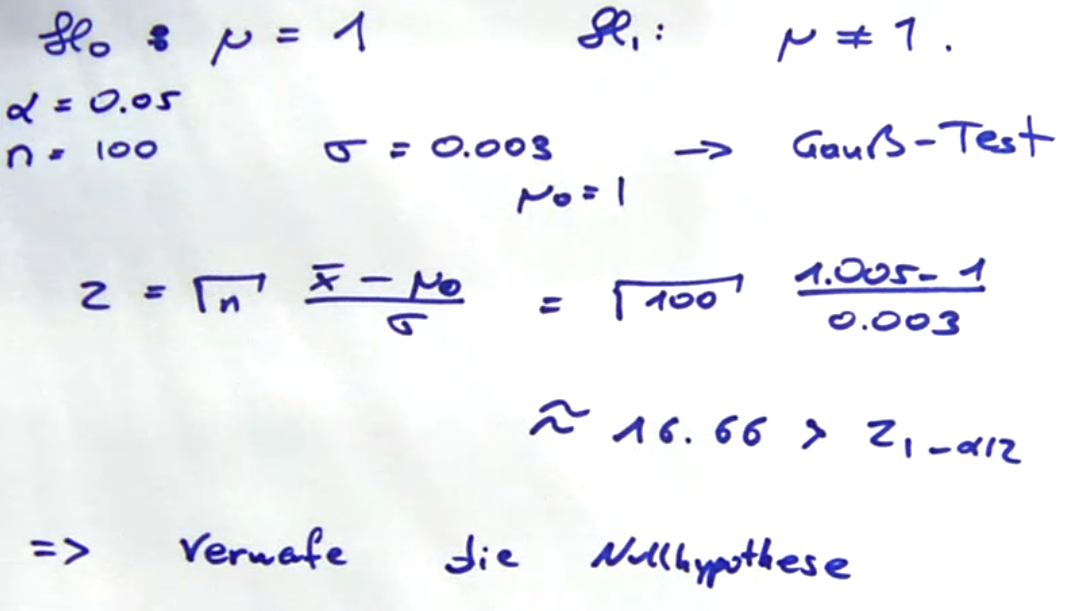 H₀ : μ = 1 H₁ : μ ≠ 1.
α = 0.05
n = 100 σ = 0.003 → Gauß-Test
μ₀ = 1
z = √n (x̄ - μ₀)/σ = √100 (1.005 - 1)/0.003
≈ 16.66 > z₁₋α/2
=> Verwafe die Nullhypothese